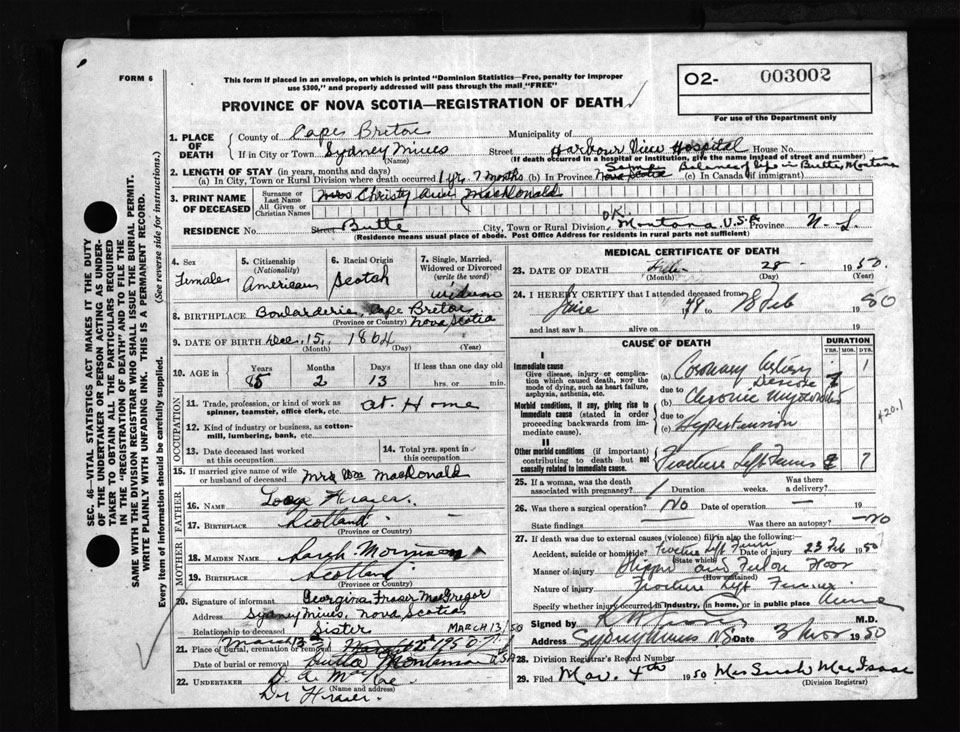 FORM 6
This form if placed in an envelope, on which is printed "Dominion Statistics—Free, penalty for improper
use $300," and properly addressed will pass through the mail "FREE"
PROVINCE OF NOVA SCOTIA—REGISTRATION OF DEATH
02- 003002
For use of the Department only
SEC. 46—VITAL STATISTICS ACT MAKES IT THE DUTY
OF THE UNDERTAKER OR PERSON ACTING AS UNDER-
TAKER TO OBTAIN ALL THE PARTICULARS REQUIRED
IN THE "REGISTRATION OF DEATH" AND TO FILE THE
SAME WITH THE DIVISION REGISTRAR WHO SHALL ISSUE THE BURIAL PERMIT.
WRITE PLAINLY WITH UNFADING INK. THIS IS A PERMANENT RECORD.
Every item of information should be carefully supplied. (See reverse side for instructions.)
1. PLACE OF DEATH
County of Cape Breton Municipality of
If in City or Town Sydney Mines Street Harbour View Hospital House No.
(Name) (If death occurred in a hospital or institution, give the name instead of street and number)
2. LENGTH OF STAY (in years, months and days) Same Balance of life in Butte, Montana
(a) In City, Town or Rural Division where death occurred 1 yr. 7 months (b) In Province Nova Scotia (c) In Canada (if immigrant)
3. PRINT NAME OF DECEASED
Surname or Last Name
All Given or Christian Names
Mrs Christy Ann MacDonald
RESIDENCE No. Street Butte City, Town or Rural Division OK. Montana, U.S.A. Province
(Residence means usual place of abode. Post Office Address for residents in rural parts not sufficient)
4. Sex Female
5. Citizenship (Nationality) American
6. Racial Origin Scotch
7. Single, Married, Widowed or Divorced (write the word) widow
8. BIRTHPLACE Boularderie, Cape Breton
(Province or Country) Nova Scotia
9. DATE OF BIRTH Dec. 15. 1864
(Month) (Day) (Year)
10. AGE in Years Months Days If less than one day old
85 2 13 hrs. or min.
OCCUPATION
11. Trade, profession, or kind of work as spinner, teamster, office clerk, etc. at Home
12. Kind of industry or business, as cotton-mill, lumbering, bank, etc.
13. Date deceased last worked at this occupation
14. Total yrs. spent in this occupation
15. If married give name of wife or husband of deceased Mrs Wm MacDonald
FATHER
16. Name Fraser.
17. BIRTHPLACE Scotland
(Province or Country)
MOTHER
18. MAIDEN NAME Sarah Morrison
19. BIRTHPLACE Scotland
(Province or Country)
20. Signature of informant Georgina Fraser MacGregor
Address Sydney Mines, Nova Scotia
Relationship to deceased Sister MARCH 13/50
21. Place of burial, cremation or removal
Date of burial or removal Butte Montana USA
22. UNDERTAKER
(Name and address)
MEDICAL CERTIFICATE OF DEATH
23. DATE OF DEATH Feb 28 1950.
(Month) (Day) (Year)
24. I HEREBY CERTIFY that I attended deceased from
June 1948 to 28 Feb 1950
and last saw h alive on 19
CAUSE OF DEATH
DURATION
YRS. MOS. DYS.
I
Immediate cause
Give disease, injury or complication which caused death, NOT the mode of dying, such as heart failure, asphyxia, asthenia, etc.
(a) Coronary Artery Disease 1
due to
Morbid conditions, if any, giving rise to immediate cause (stated in order proceeding backwards from immediate cause).
(b) Chronic Myocarditis
due to
(c) Hypertension
420.1
II
Other morbid conditions (if important) contributing to death but not causally related to immediate cause.
Fracture Left Femur
25. If a woman, was the death associated with pregnancy? Duration weeks. Was there a delivery?
26. Was there a surgical operation? No Date of operation 19
State findings Was there an autopsy? No
27. If death was due to external causes (violence) fill in also the following:—
Accident, suicide or homicide? Fracture Left Femur Date of injury 23 Feb 1950
(State which)
Manner of injury Slipped and Fell on Floor
(How sustained)
Nature of injury Fracture Left Femur
Specify whether injury occurred in industry, in home, or in public place Home
Signed by M.D.
Address Sydney Mines NS Date 3 Mar 1950
28. Division Registrar's Record Number
29. Filed Mar. 4th 1950 Mrs Sarah MacIsaac
(Division Registrar)